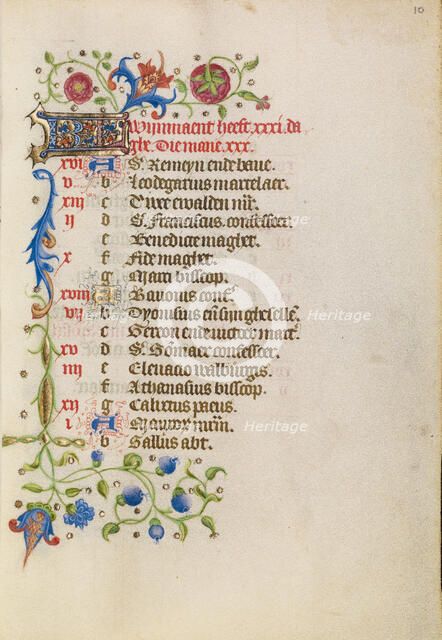 10
Wijnmaent heeft .xxxi. da
ghe. Die mane .xxx.
xvi A S. Remeyn ende bave.
v b Leodegarius martelaer.
xiii c Twee ewalden mr.
ii d S. Franciscus confessoer.
e Benedicte maghet.
x f Fide maghet.
g Marc bisscop.
xviii A Bavonis conf.
vii b Dyonisius
c Gereon ende victoer mart.
xv d S. Gomaer confessoer.
iiii e Elevacio walburgis.
f Athanasius bisscop.
xii g Calixtus paeus.
i A
b Gallus abt.
Heritage
Heritage
Heritage
Heritage